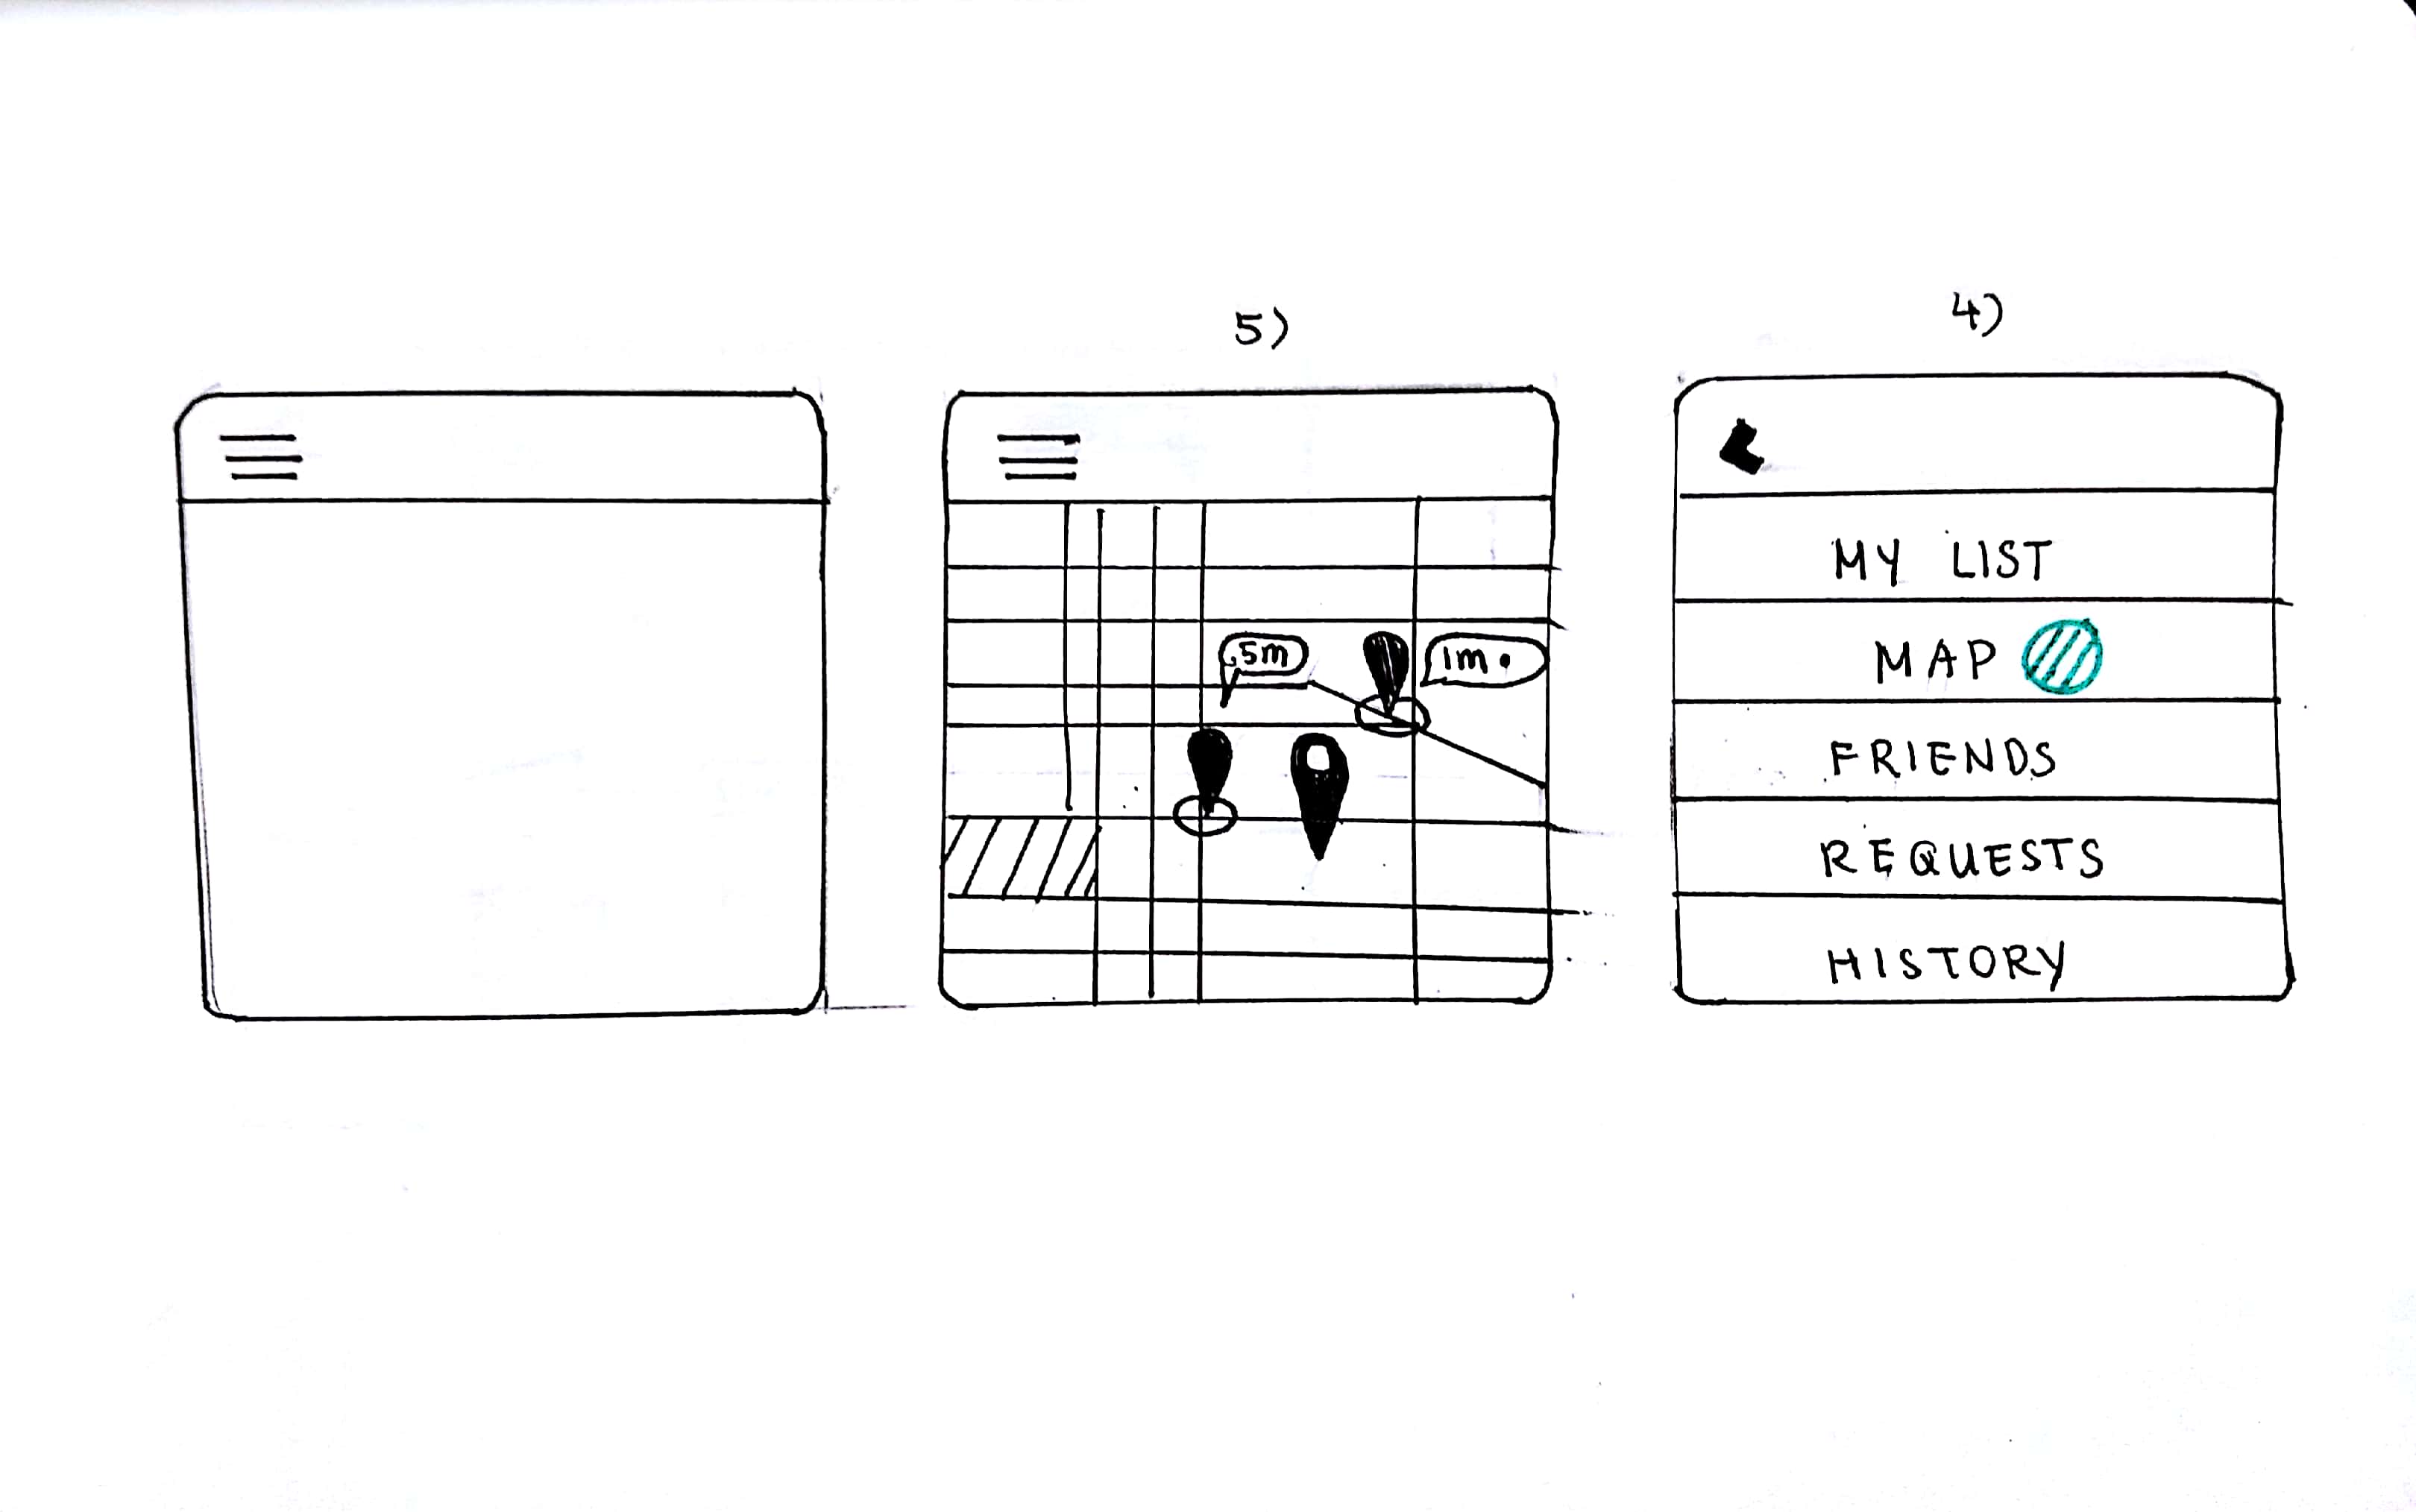 5)
4)
.5m
1m
MY LIST
MAP
FRIENDS
REQUESTS
HISTORY